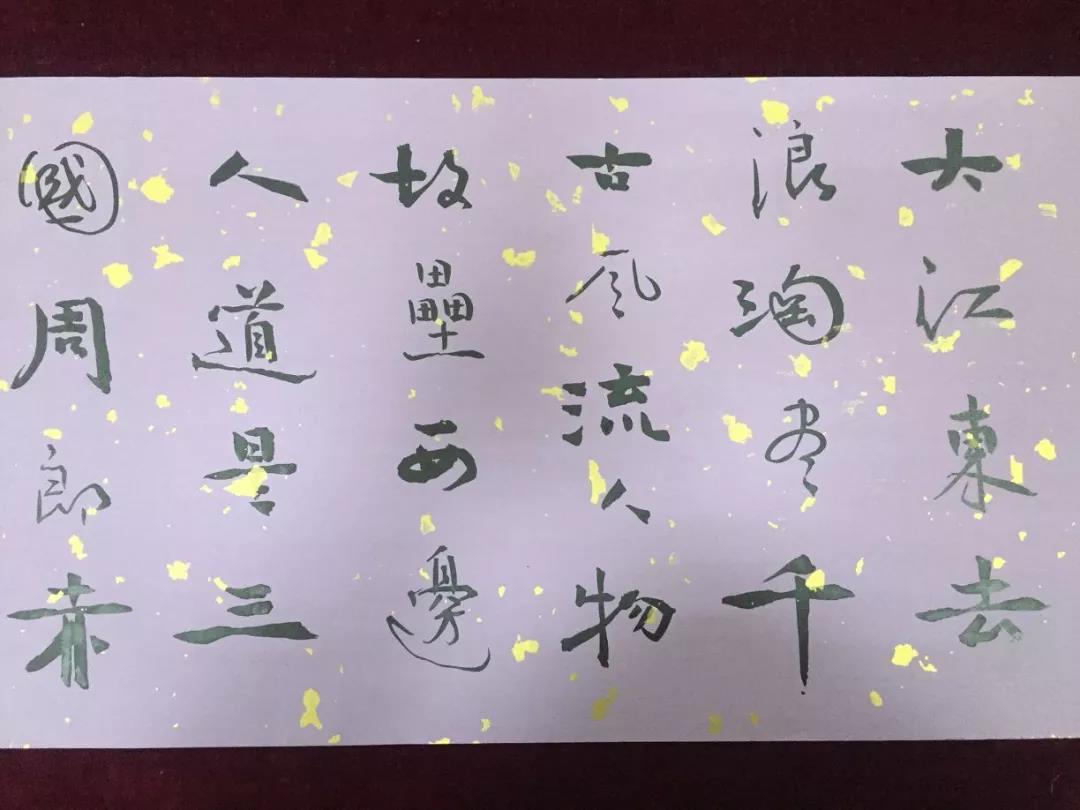 大江東去
浪淘尽千
古風流人物
故壘西邊
人道是三
國周郎赤